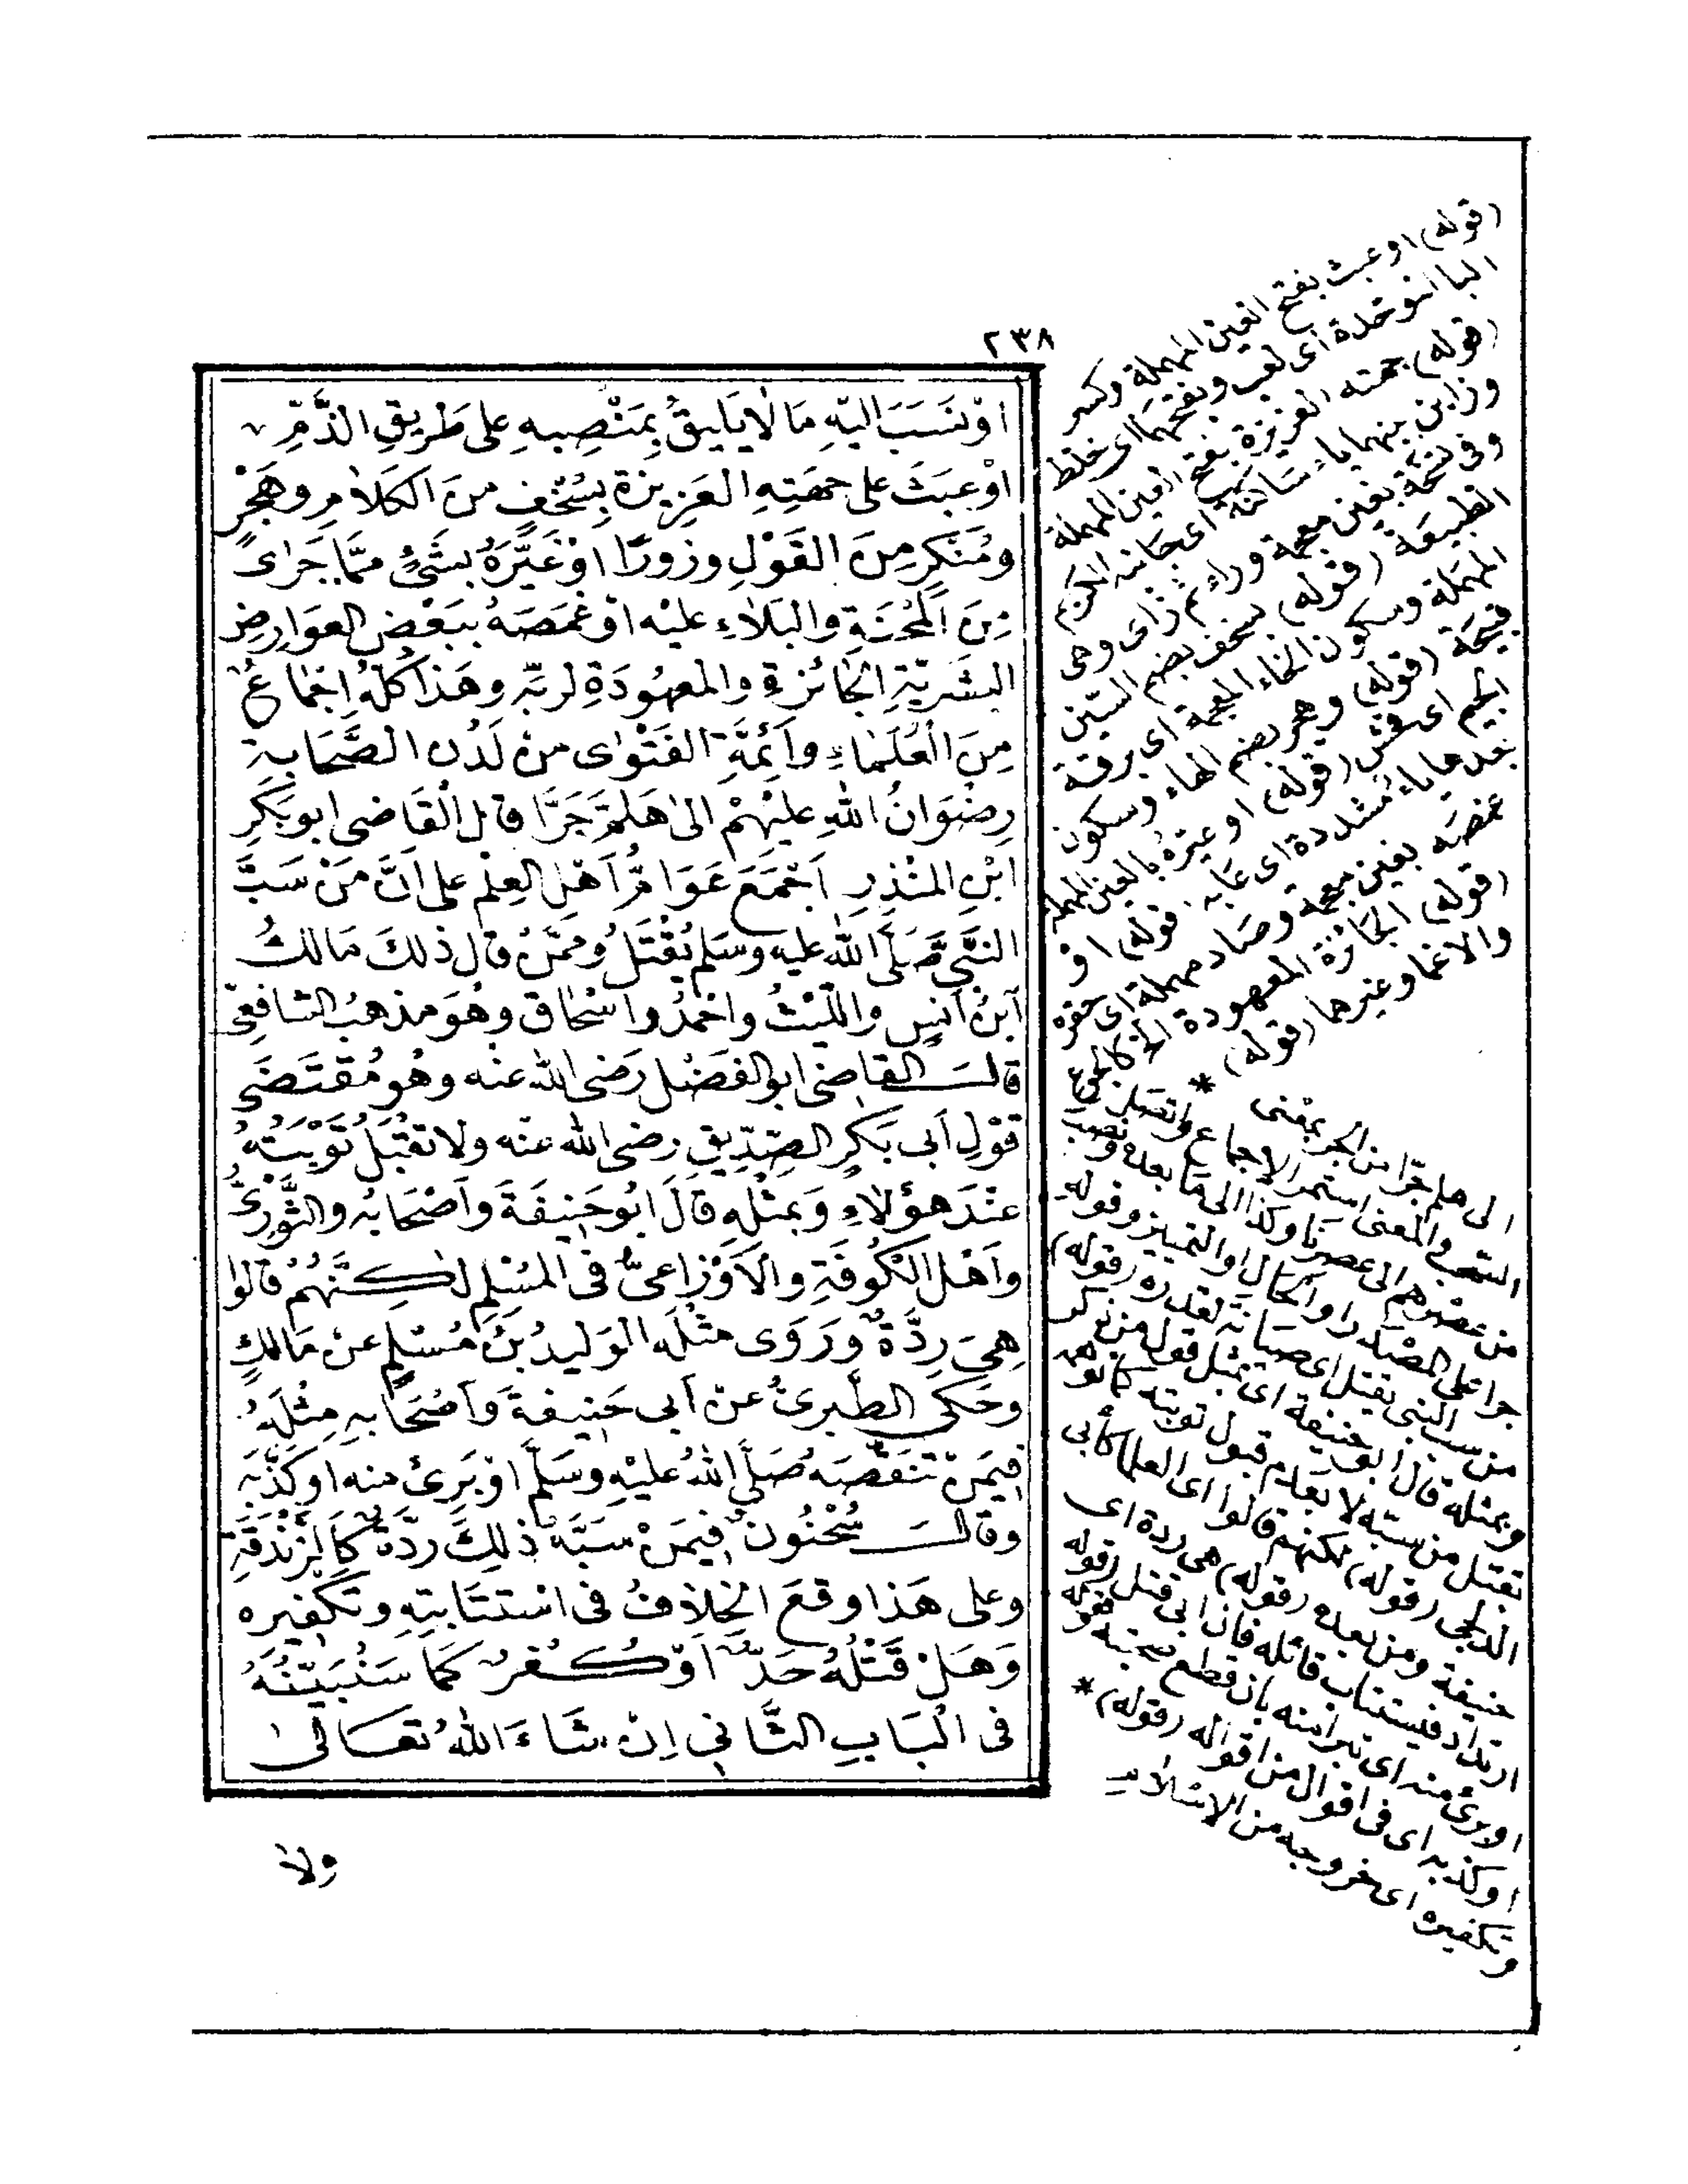 ٢٣٨
اَوْ نَسَبَ اِلَيْهِ مَا لَا يَليقُ بِمَنْصِبِهِ عَلى طَريقِ الذَّمِّ
اَوْ عَبَثَ عَلى جِهَتِهِ الْعَزِيزَةِ بِسُخْفٍ مِنَ الكَلَامِ وهُجْرٍ
ومُنْكَرٍ مِنَ القَوْلِ وزورٍ اَوْ عَيَّرَهُ بِشَىْءٍ مِمَّا جَرَى
مِنَ الْمِحْنَةِ والبَلَاءِ عَلَيْه اَوْ غَمَصَهُ بِبَعْضِ العَوَارِضِ
البَشَرِيَّةِ الْجَائِزَةِ والمَعْهُودَةِ لَدَيْهِ وهَذا كُلُّهُ اِجْمَاعٌ
مِنَ الْعُلَمَاءِ وأَئِمَّةِ الفَتْوٰى مِنْ لَدُنِ الصَّحَابةِ
رِضْوَانُ اللهِ عَلَيْهِمْ اِلى هَلُمَّ جَرًّا قال الْقَاضِى ابو بَكْرِ
ابْنُ المُنْذِرِ اَجْمَعَ عَوَامُّ اَهْلِ العِلْمِ عَلى اَنَّ مَنْ سَبَّ
النَّبِىَّ صَلَّى اللهُ عَليه وسَلم يُقْتَلُ ومِمَّنْ قال ذلكَ مَالكُ
ابْنُ اَنَسٍ واللَّيْثُ واَحْمَدُ واِسْحَاق وهُوَ مَذْهَبُ الشافِعِىِّ
قالـــ القاضِى ابو الفَضْلِ رَضى الله عنه وهُو مُقْتَضَى
قَوْلِ اَبى بَكْرٍ الصِّدِّيقِ رضى الله عنه ولا تُقْبَلُ تَوْبَتُهُ
عِنْدَ هٰؤُلَاءِ وَبمِثْلِهِ قالَ اَبُو حَنِيفَةَ واَصْحَابُهُ والثَّوْرِىُّ
واَهْلُ الْكُوفَةِ والْاَوْزاعِىُّ فى المُسْلِمِ لٰكِنَّهُمْ قالوا
هِىَ رِدَّةٌ ورَوَى مِثْلَهُ الْوَليدُ بْنُ مُسْلِمٍ عَنْ مَالكٍ
وحَكى الطَّبَرىُّ عَنْ اَبى حَنِيفَةَ واَصْحَابِهِ مِثْلَهُ
فِيمَنْ تَنَقَّصَهُ صَلَّى اللهُ عَليْهِ وسَلَّمَ اَوْ بَرِئَ منه او كَذَّبَهُ
وقالـــ سُحْنُونٌ فِيمَنْ سَبَّهُ ذٰلِكَ رِدَّةٌ كَالزَّنْدَقَةِ
وعَلى هَذا وقَعَ الْخِلافُ فى اسْتِتَابَتِهِ وتَكْفِيرِه
وهَلْ قَتْلُهُ حَدٌّ اَوْ كُفْرٌ كَمَا سَنُبَيِّنُهُ
فى الْبَابِ الثَّانِي اِنْ شَاءَ اللهُ تَعَالىٰ
ولا
(قوله) او عبث بفتح العين المهملة وكسر
البا الموحدة اى لعب وبفتحهما اى خلط
(قوله) جهته العزيزة بفتح العين المهملة
وزاين بينهما ياء ساكنة اى جانبه الكريم
وفى نسخة بغين معجمة وراء ثم زاى وهى
الطبيعة (قوله) بسخف بضم السين
المهملة وسكون الخاء المعجمة اى برقة
قبيحة (قوله) وهجر بضم الهاء وسكون
الجيم اى فحش (قوله) او عيره بالعين المهملة
بعدها ياء مشددة اى عابه (قوله) او
غمصه بغين معجمة وصاد مهملة اى حقره
(قوله) الجائزة المعهودة اى كالجوع
والاغما وغيرها (قوله) *
الى هلم جرا من الجر بمعنى
السحب والمعنى استمر الاجماع واتصل
من عصرهم الى عصرنا وكذا الى ما بعده ونصب
جرا على المصدر او الحال او التمييز وقوله
من سب النبى يقتل اى صيانة لقدره (قوله)
وبمثله قال ابو حنيفة اى بمثل قول من ذكر
يقتل من سبه لا بعدم قبول توبته كما توهمه
الدلجى (قوله) لكنهم قالوا اى العلما كأبى
حنيفة ومن بعده (قوله) هى ردة اى
ارتداد فيستتاب قائله فان ابى قتل (قوله)
او برئ منه اى تبرا منه بان قطع محبته قوله
او كذبه اى فى اقوال من اقواله (قوله) *
وتكفيره اى خروجه من الاسلام